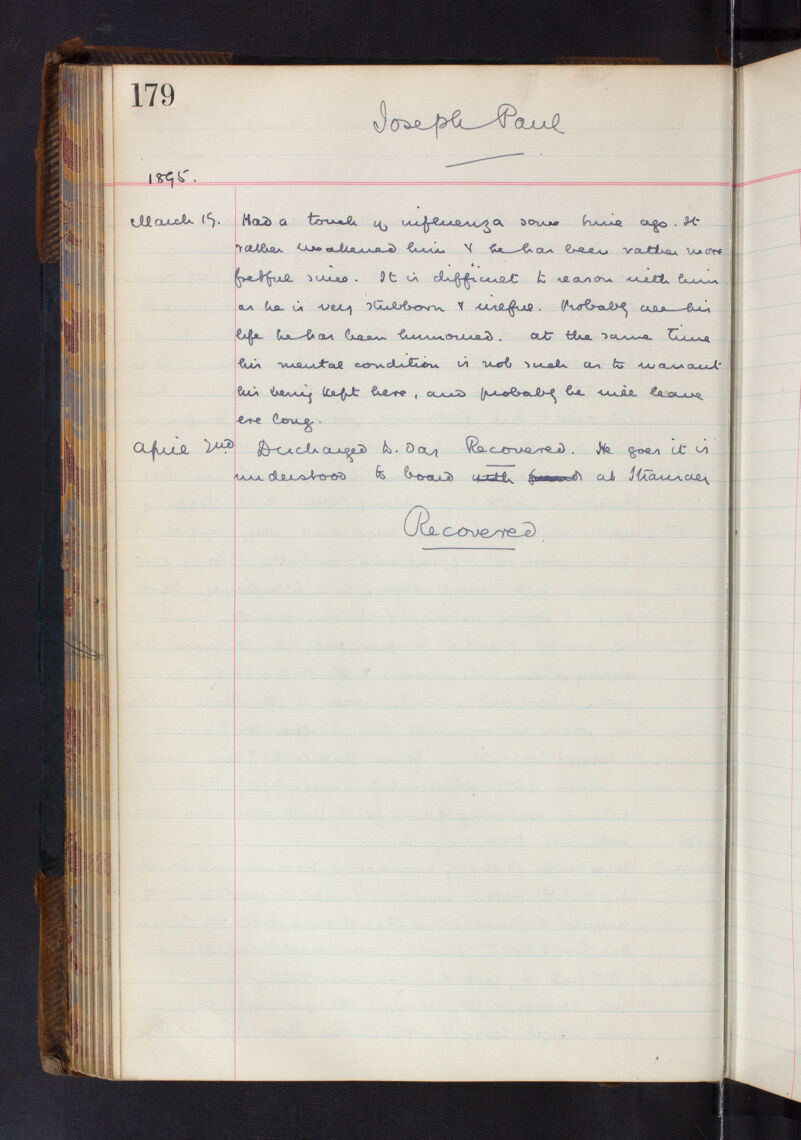 179
Joseph Paul
1895.
March 19. Had a touch of influenza some time ago. It
rather weakened him & he has been rather more
fretful since. It is difficult to reason with him
as he is very stubborn & wilful. Probably all his
life he has been humoured. At the same time
his mental condition is not such as to warrant
his being kept here, and probably he will leave
ere long.
April 2nd Discharged to.day Recovered. He goes it is
understood to board with friends at Stranraer
Recovered